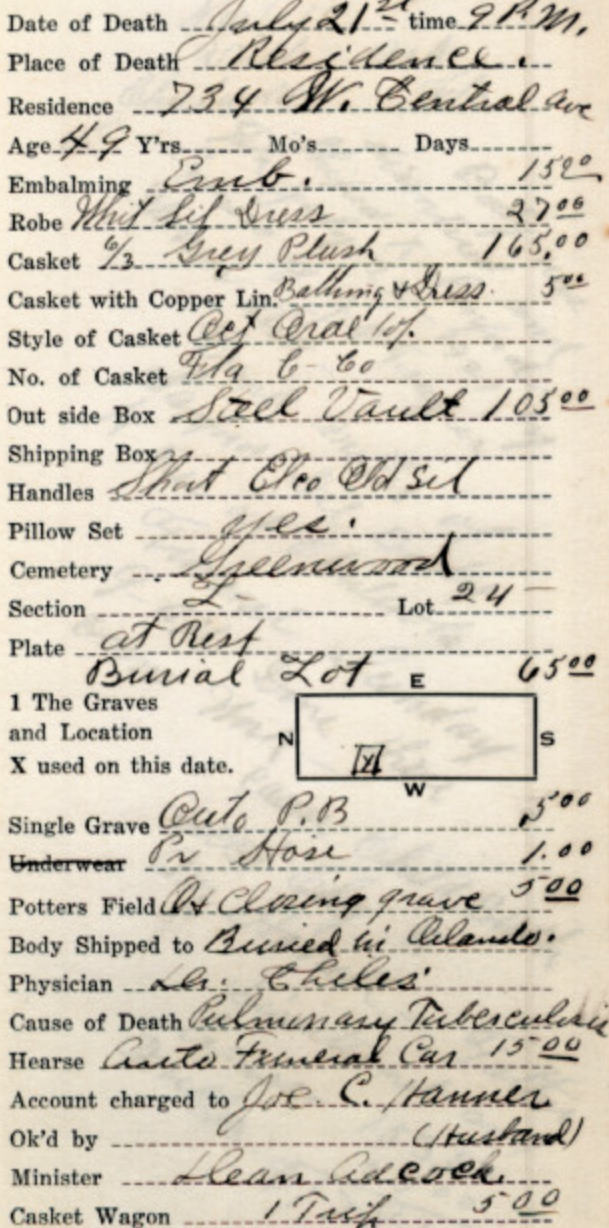 Date of Death July 21st time 9 P.M.
Place of Death Residence.
Residence 734 W. Central Ave
Age 49 Y'rs Mo's Days
Embalming Emb. 15 00
Robe Whit Sil Dress 27 00
Casket 6/3 Grey Plush 165.00
Casket with Copper Lin. Bathing & Dress. 5 00
Style of Casket Oct
No. of Casket Fla C Co
Out side Box Steel Vault 105 00
Shipping Box
Handles Short Old Sil
Pillow Set yes.
Cemetery Greenwood
Section Lot 24
Plate at Rest
Burial Lot 65 00
E
1 The Graves
and Location
X used on this date.
N X S
W
Single Grave Auto P.B 5 00
Underwear Pr Hose 1.00
Potters Field Closing grave 5 00
Body Shipped to Buried in Orlando.
Physician Dr. Chiles
Cause of Death Pulmonary Tuberculosis
Hearse Auto Funeral Car 15 00
Account charged to Joe. C. Hanner
Ok'd by (Husband)
Minister Dean Adcock.
Casket Wagon 1 Trip 5 00